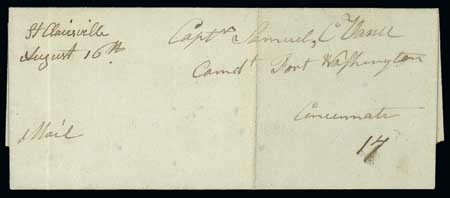 St Clairsville
August 16th
Captn Samuel C Vance
Comdt Fort Washington
Cincinnati
Mail
17